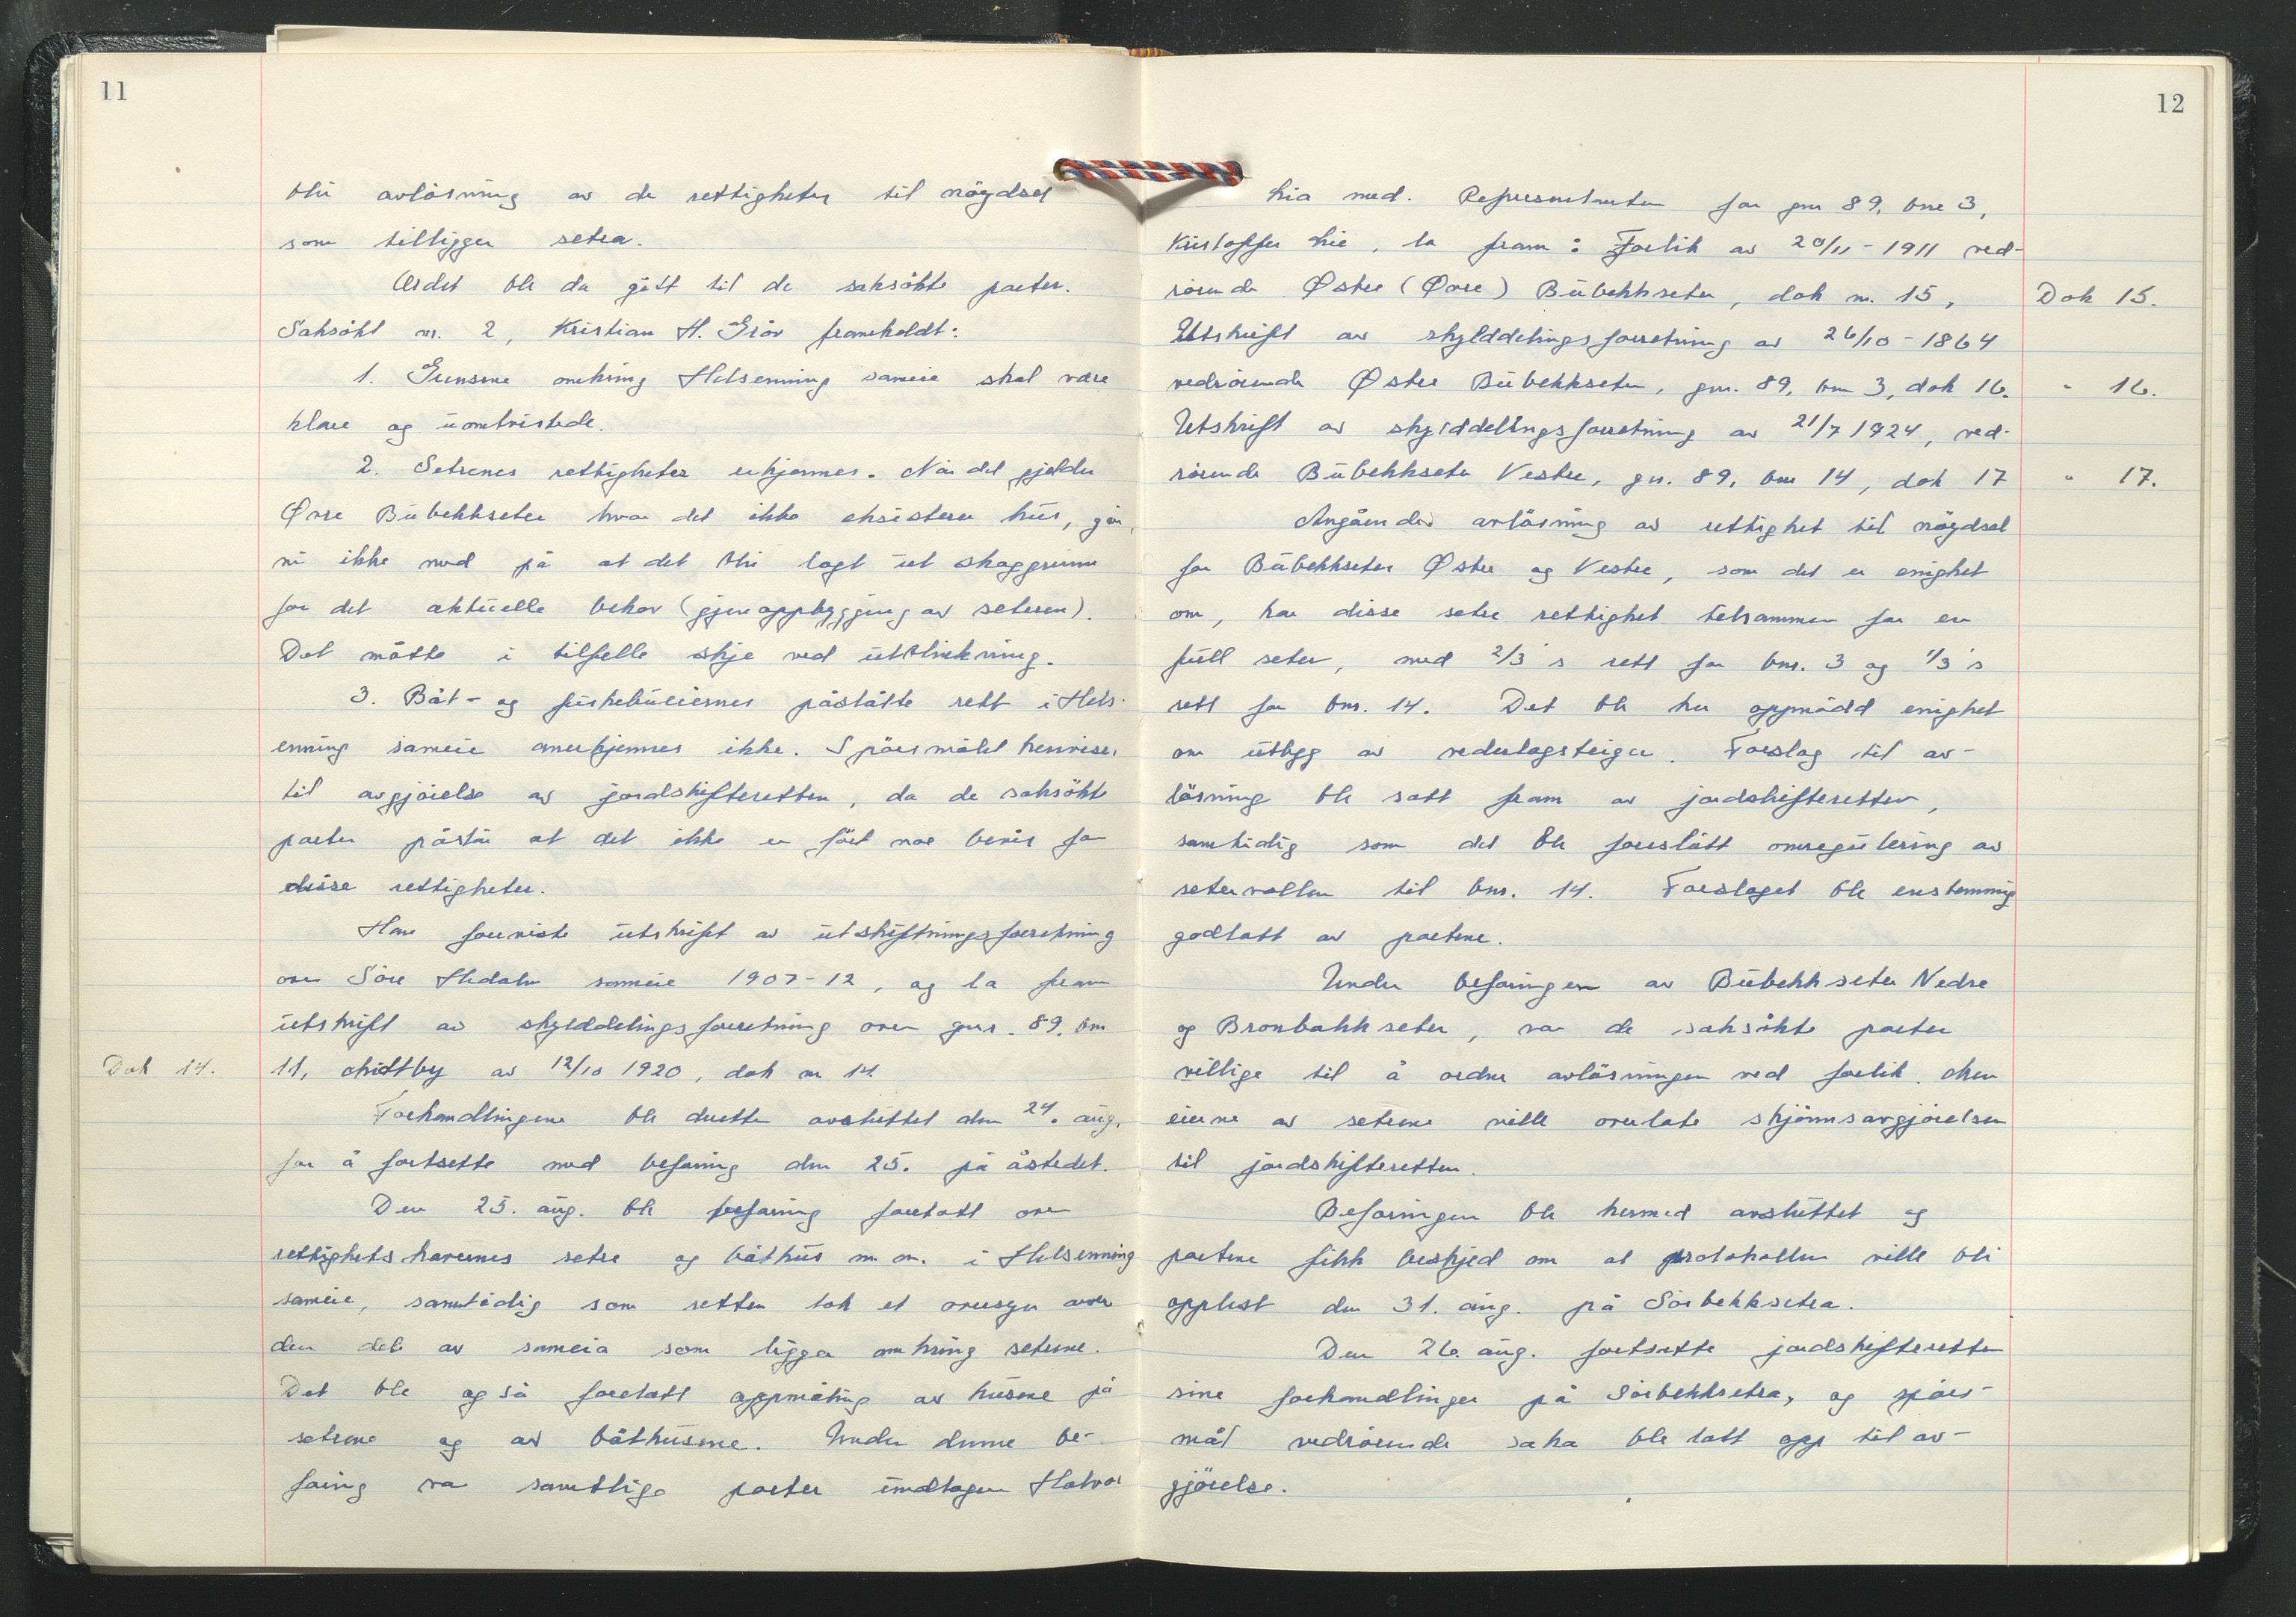 11
bli avløsning av de rettigheter til nøydsel
som tilligger setra.
Ordet ble da gitt til de saksøkte parter.
Saksøkt nr. 2, Kristian H. Grøv framholdt:
1. Grensene omkring Helsenning sameie skal være
klare og uomtvistede.
2. Setrenes rettigheter erkjennes. Når det gjelder
Øvre Bubekkseter hvor det ikke eksisterer hus, går
vi ikke med på at det blir lagt ut skoggrunn
for det aktuelle behov (gjenoppbygging av seteren).
Det måtte i tilfelle skje ved utblinkning.
3. Båt- og fiskebueiernes påståtte rett i Hels-
enning sameie anerkjennes ikke. Spørsmålet henvises
til avgjørelse av jordskifteretten, da de saksøkte
parter påstår at det ikke er ført noe bevis for
disse rettigheter.
Han foreviste utskrift av utskiftningsforretning
over Søre Hedalen sameie 1907-12, og la fram
utskrift av skylddelingsforretning over gnr. 89, bnr
Dok 14.
11, Midtby av 12/10 1920, dok nr 14.
Forhandlingene ble deretter avsluttet den 24. aug.
for å fortsette med befaring den 25. på åstedet.
Den 25. aug. ble befaring foretatt over
rettighetshavernes setre og båthus m.m. i Helsenning
sameie, samtidig som retten tok et oversyn over
den del av sameia som ligger omkring setrene.
Det ble også foretatt oppmåling av husene på
setrene og av båthusene. Under denne be-
faring var samtlige parter unntagen Halvor
12
Lia med. Representanten for gnr 89, bnr 3,
Kristoffer Lie, la fram: Forlik av 20/11-1911 ved-
rørende Østre (Øvre) Bubekkseter, dok nr. 15,
Dok 15.
Utskrift av skylddelingsforretning av 26/10-1864
vedrørende Østre Bubekkseter, gnr. 89, bnr 3, dok 16.
" 16.
Utskrift av skylddelingsforretning av 21/7 1924, ved-
rørende Bubekkseter Vestre, gnr. 89, bnr 14, dok 17
" 17.
Angående avløsning av rettighet til nøydsel
for Bubekkseter Østre og Vestre, som det er enighet
om, har disse setre rettighet tilsammen for en
full seter, med 2/3's rett for bnr. 3 og 1/3's
rett for bnr. 14. Det ble her oppnådd enighet
om utlegg av vederlagsteiger. Forslag til av-
løsning ble satt fram av jordskifteretten,
samtidig som det ble foreslått omregulering av
setervollen til bnr. 14. Forslaget ble enstemmig
godtatt av partene.
Under befaringen av Bubekkseter Nedre
og Bronbakkseter, var de saksøkte parter
villige til å ordne avløsningen ved forlik. Men
eierne av setrene ville overlate skjønnsavgjørelsen
til jordskifteretten.
Befaringen ble hermed avsluttet og
partene fikk beskjed om at protokollen ville bli
opplest den 31. aug. på Sørbekksetra.
Den 26. aug. fortsatte jordskifteretten
sine forhandlinger på Sørbekksetra, og spørs-
mål vedrørende saka ble tatt opp til av-
gjørelse.